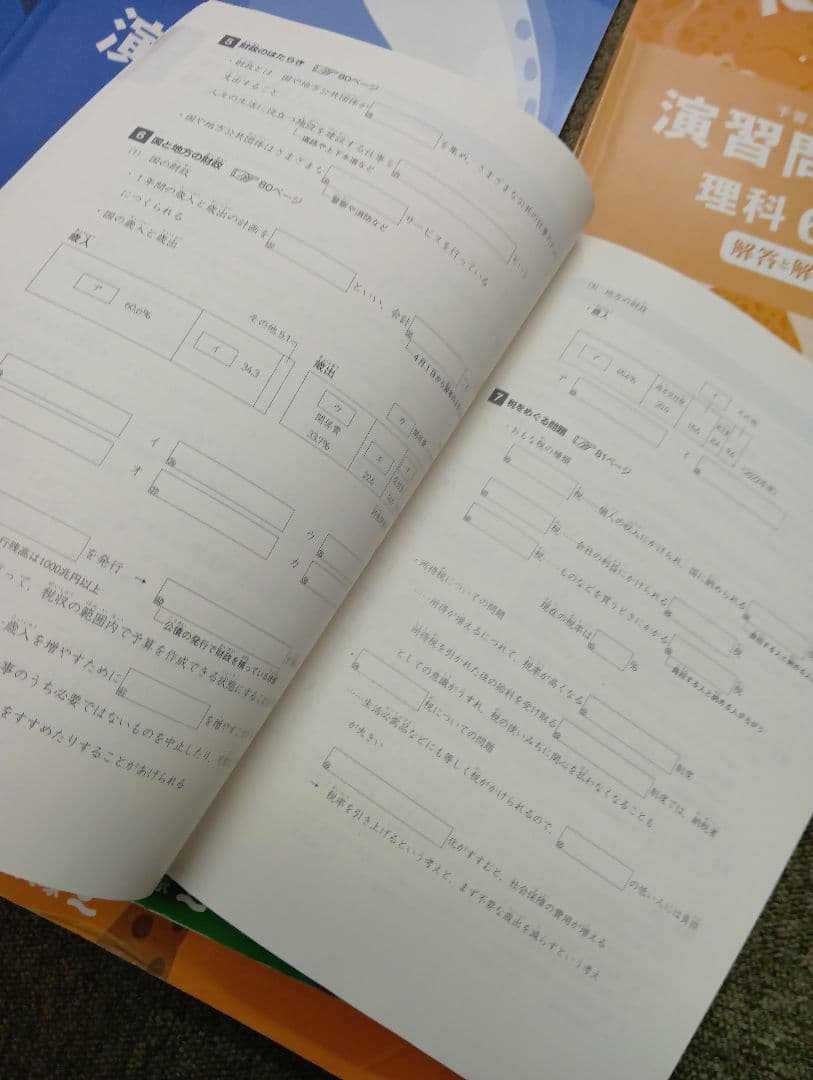 演
演習問
理科6
解答と解
5 財政のはたらき ☞80ページ
・財政とは、国や地方公共団体が
を集め、さまざまな公共の仕事
支出すること
人々の生活に役立つ施設を建設する仕事を
という
道路や上下水道など
・国や地方公共団体はさまざまな
サービスを行っている
警察や消防など
6 国と地方の財政 ☞80ページ
(1) 国の財政
・1年間の歳入と歳出の計画を
といい、会計
につくられる
4月1日から
・国の歳入と歳出
歳入
ア 60.6%
イ 34.3
その他5.1
歳出
ウ 関係費 33.7%
エ 22.4
オ
カ
イ
オ
ウ
カ
を発行 →
行残高は1000兆円以上
公債の発行で財政を補っている状態
って、税収の範囲内で予算を作成できる状態にする
歳入を増やすために
を増やす
事のうち必要ではないものを中止したり、
をすすめたりすることがあげられる
地方の財政
・歳入
ア
イ
その他
ア
イ
7 税をめぐる問題 ☞81ページ
・おもな税の種類
税…個人の収入にかけられ、国に納められる
税…会社の利益にかけられる
税
税…ものなどを買うときにかかる
税
現在の税率は
%
負担する人と納める人がちがう
・所得税についての問題
……所得が増えるにつれて、税率が高くなる
制度
所得税を引かれた後の給料を受け取る
制度では、納税者
としての意識がうすれ、税の使いみちに関心を払わなくなることも
・
税についての問題
……生活必需品などにも等しく税がかけられるので、
の低い人には負担
が大きい
化がすすむと、社会保障の費用が増える
→ 税率を引き上げるという考えと、まず不要な歳出を減らすという考え